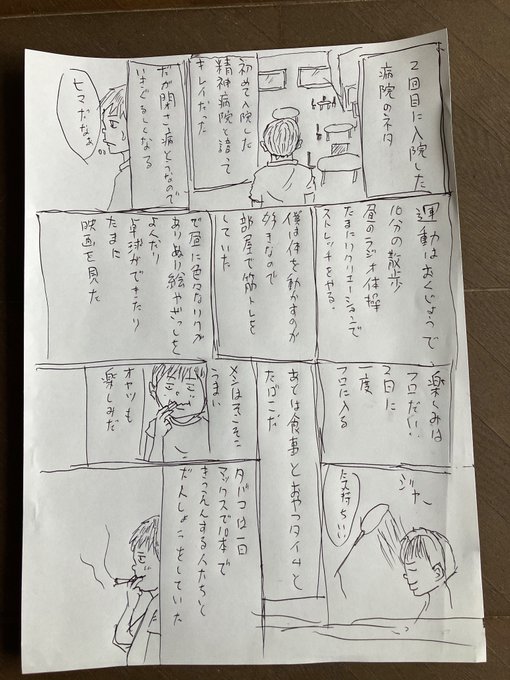 2回目に入院した
病院のネタ
初めて入院した
精神病院と違って
キレイだった
だが閉さ病とうなので
いきぐるしくなる
ヒマだなぁ
運動はおくじょうで
10分の散歩
昼のラジオ体操
たまにリクリエーションで
ストレッチをやる。
僕は体を動かすのが
好きなので
部屋で筋トレを
していた
で昼に色々なリクが
ありぬり絵やざっしを
よんだり
卓球ができたり
たまに
映画を見た
楽しみは
フロだい!
2日に
一度
フロに入る
ジャー
気持ちいい
あとは食事とおやつタイムと
たばこだ
メシはそこそこ
うまい
オヤツも
楽しみだ
タバコは一日
マックスで10本で
きつえんする人たちと
だんしょうをしていた